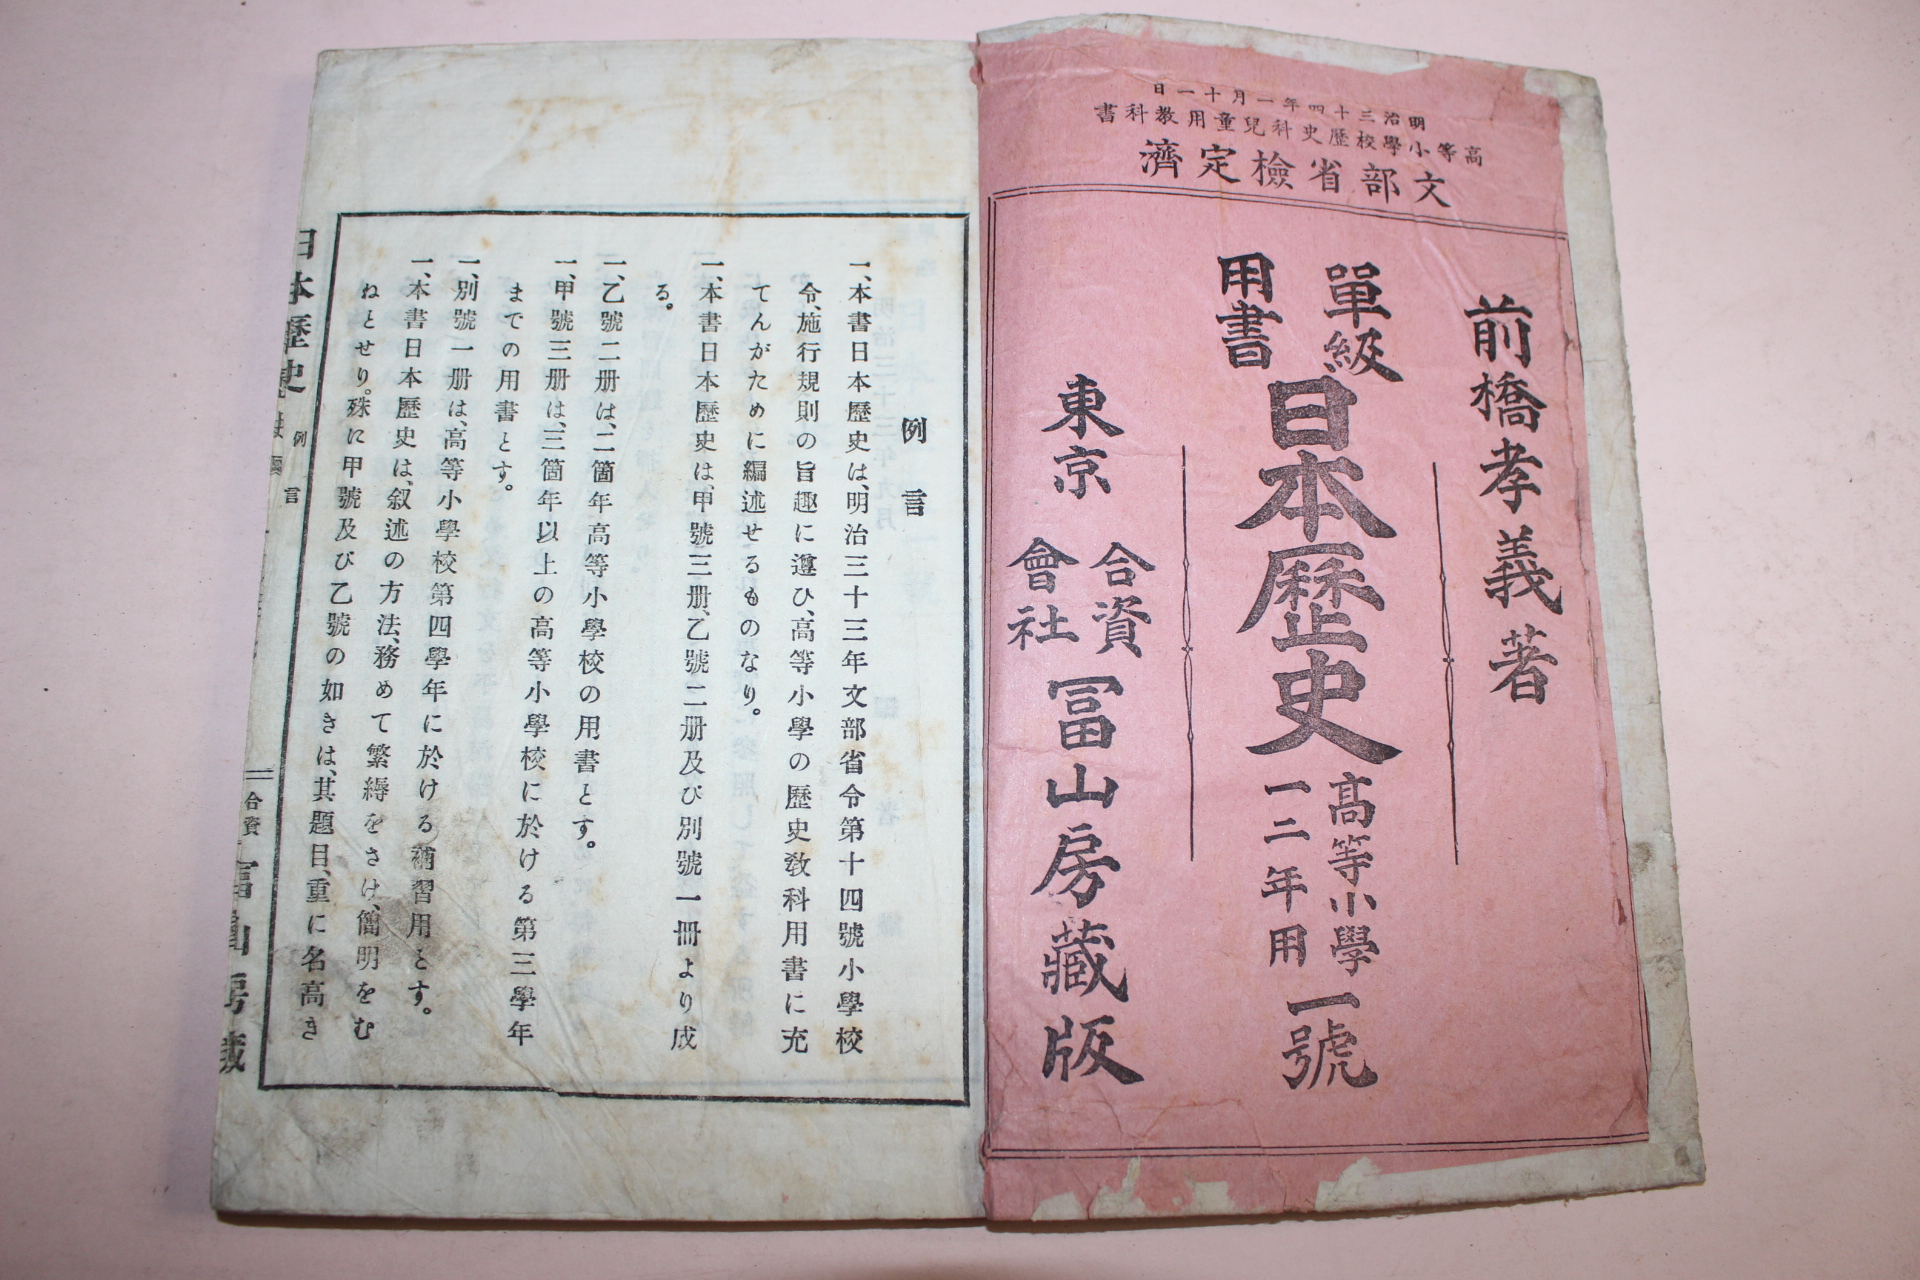 明治三十四年一月十一日
高等小學校歷史科兒童用教科書
文部省檢定濟
前橋孝義著
單級
用書
日本歷史
高等小學
一二年用
一號
東京
合資
會社
冨山房藏版
例言
一、本書日本歷史は、明治三十三年文部省令第十四號小學校
令施行規則の旨趣に遵ひ、高等小學の歷史敎科用書に充
てんがために編述せるものなり。
一、本書日本歷史は、甲號三册、乙號二册及び別號一冊より成
る。
一、乙號二册は、二箇年高等小學校の用書とす。
一、甲號三册は、三箇年以上の高等小學校に於ける第三學年
までの用書とす。
一、別號一册は、高等小學校第四學年に於ける補習用とす。
一、本書日本歷史は、叙述の方法、務めて繁縟をさけ、簡明をむ
ねとせり。殊に甲號及び乙號の如きは、其題目、重に名高き
日本歷史
例言
合資
冨山房藏